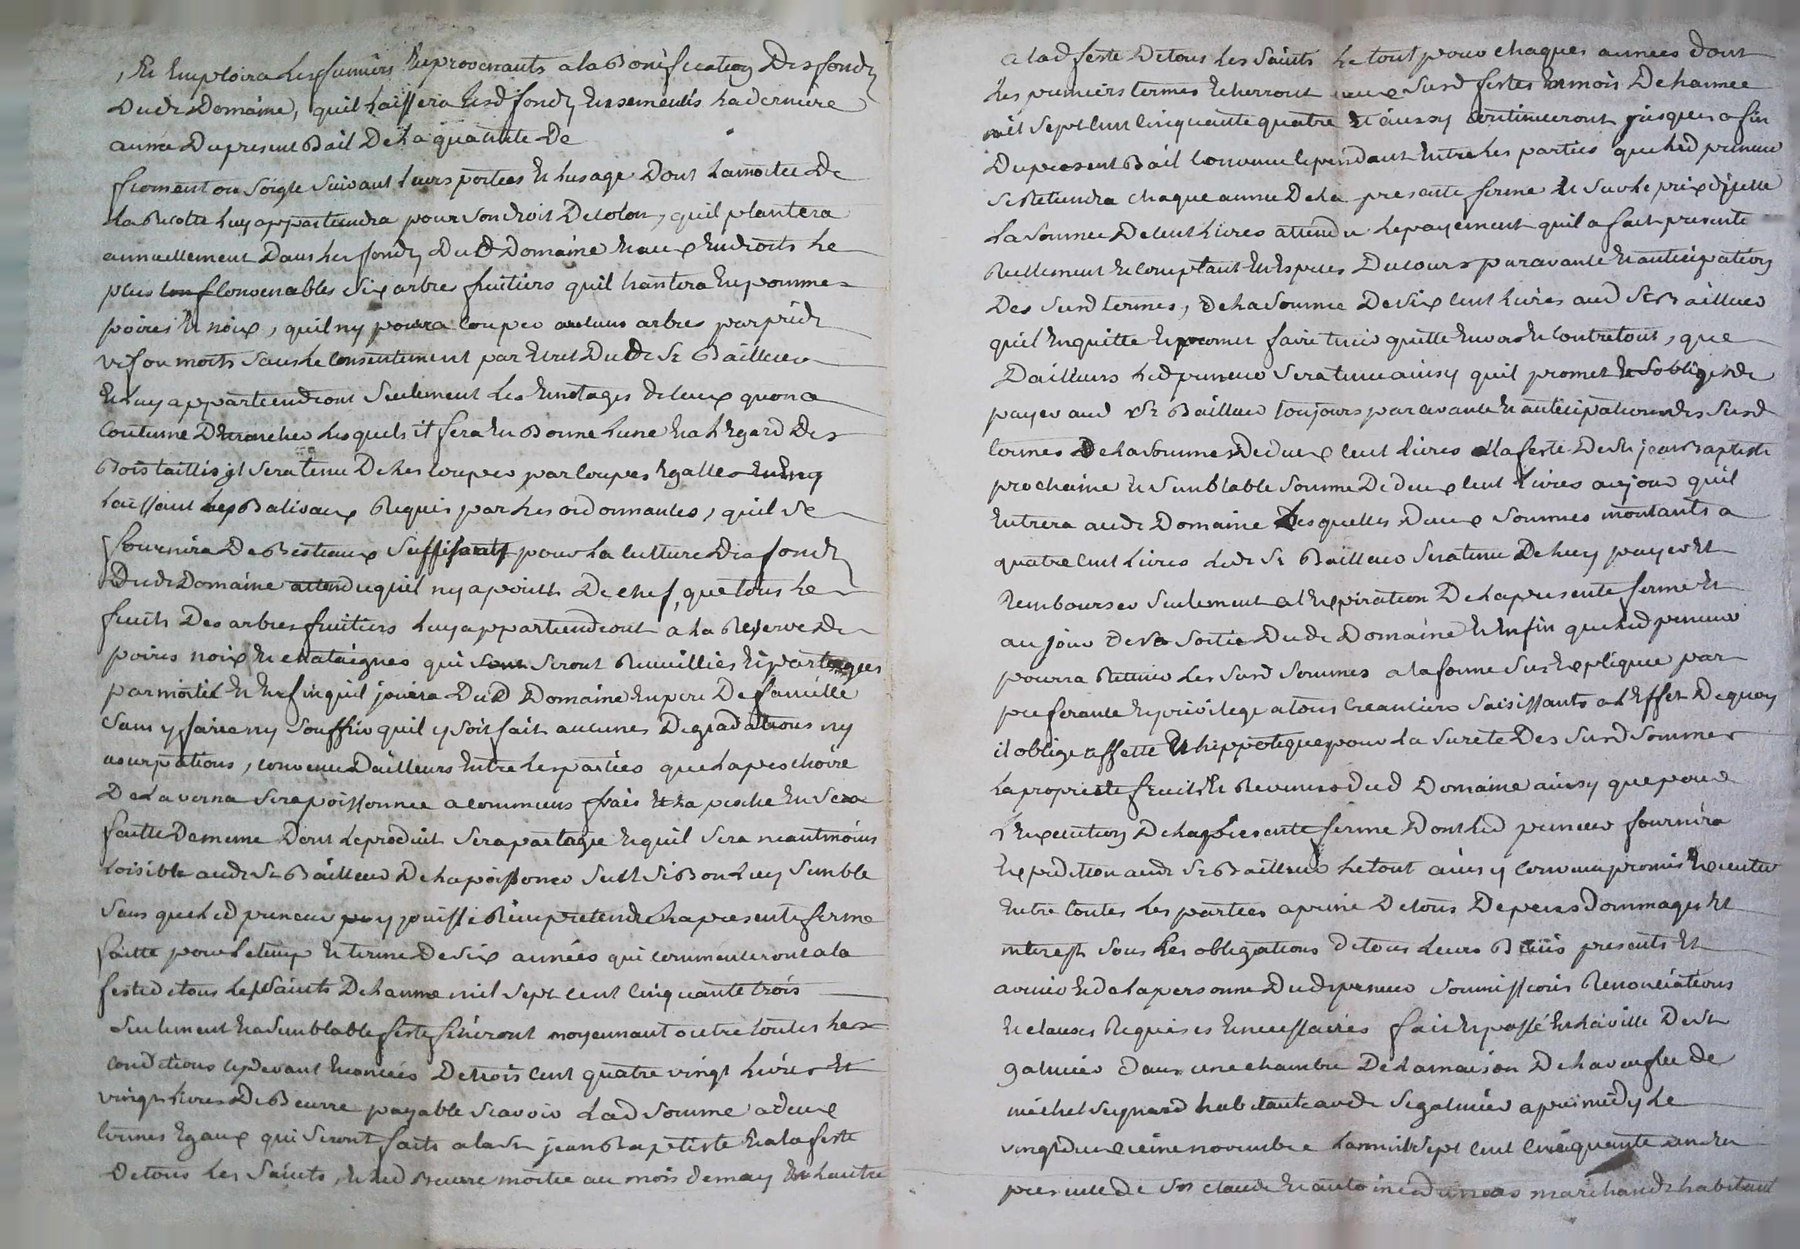 , Et Employra les fumiers En provenants a la Bonification Des fondz
Dudt Domaine, quil laissera lesd fondz Ensemencés la derniere
année Du present Bail De la quantité de
froment ou soigle suivant leurs portees Et lusage Dont la moitié De
la Recolte luy appartiendra pour son droit De colon, quil plantera
annuellement Dans les fondz Dud Domaine Et aux Endroits le
plus Convenables Six arbres fruitiers quil hantera En pomme
poires Et noix, quil ny pourra couper aucuns arbres par pied
vif ou morts sans le consentement par Ecrit Dudt Sr Bailleur
Et luy appartiendront seulement les Emotages de ceux quon a
Coutume D'Emoncher lesquels il fera En Bonne lune Et a lEgard Des
Bois taillis il sera tenu De les couper par coupes Egalles En
laissant les Balivaux Requis par les ordonnances, quil se
fournira De Bestiaux suffisants pour la culture Des fondz
Dudt Domaine attendu quil ny a point De chef, que tous les
fruits Des arbres fruitiers luy appartiendront a la Reserve de
poires noix Et chataignes qui seront Recuillies Et partagees
par moitié Et Enfin quil jouira Dud Domaine En pere De famille
sans y faire ny souffrir quil y soit fait aucunes Degradations ny
usurpations, convenu Dailleurs Entre les parties que la peschoire
De la verna sera poissonnee a communs frais Et la pesche En sera
faitte De meme Dont le produit sera partagé Et quil sera neantmoins
loisible audt Sr Bailleur De la poissonner seul si Bon luy semble
sans que led preneur puisse Rien pretendre la presente ferme
faitte pour le temps Et terme De six années qui commenceront a la
feste de tous les Saints De lannee mil sept cent cinquante trois
seulement Et a semblable feste finiront moyennant outre toutes les
conditions cydevant Enoncées De trois cent quatre vingt livres Et
vingt livres De Beurre payable scavoir lad somme a deux
termes Egaux qui seront faits a la St jean Baptiste Et a la feste
De tous les Saints, Et led Beurre moitié au mois de may Et lautre
a lad feste De tous les Saints le tout pour chaques années dont
les premiers termes Echerront aux susd festes Et mois De lannee
mil sept cent cinquante quatre Et ainsy continueront jusques a fin
Du present Bail Convenu cependant Entre les parties que led preneur
se Retiendra chaque année De la presente ferme Et sur le prix dicelle
la somme De cent livres attendu le payement quil a fait presente
Reellement Et comptant En Especes Du cours par avance Et anticipation
Des susd termes, De la somme De six cent livres aud Sr Bailleur
quil En quitte Et promet faire tenir quitte Envers Et contre tous, que
Dailleurs led preneur sera tenu ainsy quil promet Et soblige de
payer aud Sr Bailleur toujours par avance Et anticipation des susd
termes De la somme De deux cent livres a la feste De St jean Baptiste
prochaine Et semblable somme De deux cent livres au jour quil
Entrera audt Domaine lesquelles deux sommes montants a
quatre cent livres ledt Sr Bailleur sera tenu De luy payer Et
Rembourser seulement a lExpiration De la presente ferme Et
au jour De sa sortie Dudt Domaine Et Enfin que led preneur
pourra Retenir les susd sommes a la forme sus Expliquée par
preferance Et privilege a tous Creanciers saisissants a lEffet De quoy
il oblige affette Et hippoteque pour la sureté Des susd sommes
la proprieté fruits Et Revenus Dud Domaine ainsy que pour
lExecution De la presente ferme Dont led preneur fournira
Expedition audt Sr Bailleur le tout ainsy convenu promis Executer
Entre toutes les parties a peine De tous Depens Dommages Et
interest sous les obligations de tous leurs Biens presents Et
avenir Et de la personne Dudt preneur soumissions Renonciations
Et clauses Requises Et necessaires fait Et passé En la ville De St
galmier dans une chambre De la maison De la veufue de
michel Seynard habitante audt St galmier apres midy le
vingt deuxieme novembre lan mil sept cent cinquante un En
presence de Srs Claude Et antoine marchands habitant